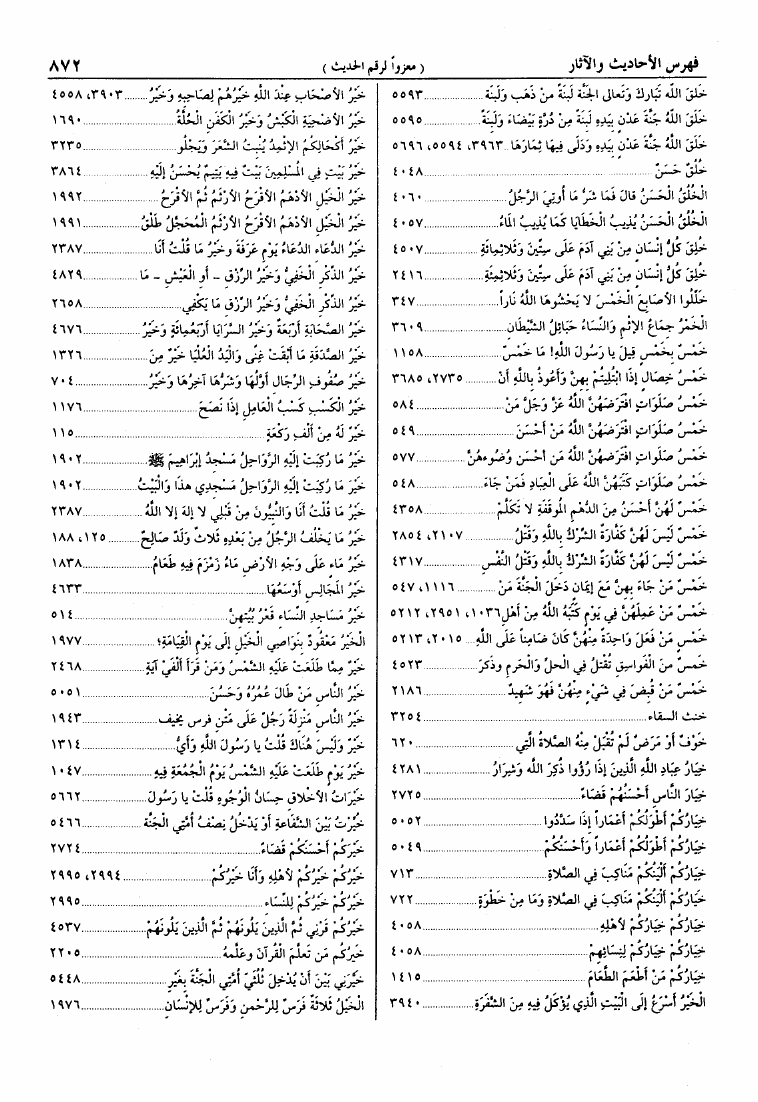 فهرس الأحاديث والآثار
( معزواً لرقم الحديث )
٨٧٢
خَلَقَ اللَّه تَبَارَكَ وَتَعالى الجَنَّةَ لَبِنَةً منْ ذَهَب وَلَبِنَة ........ ٥٥٩٣
خَلَقَ اللَّهُ جَنَّةَ عَدْنٍ بِيَدِهِ لَبِنَةً مِنْ دُرَّةٍ بَيْضَاءَ وَلَبِنَةً ........ ٥٥٩٥
خَلَقَ اللَّهُ جَنَّةَ عَدْنٍ بِيَدِهِ وَدَلَّى فِيهَا ثِمَارَهَا .. ٣٩٦٣، ٥٥٩٤، ٥٦٩٦
خُلُقٌ حَسَنٌ ........ ٤٠٤٨
الْخُلُقُ الْحَسَنُ قالَ فَمَا شَرُّ مَا أُوتِيَ الرَّجُلُ ........ ٤٠٦٠
الْخُلُقُ الْحَسَنُ يُذِيبُ الْخَطَايَا كَمَا يُذِيبُ المَاءُ ........ ٤٠٥٧
خُلِقَ كُلُّ إِنْسَانٍ مِنْ بَنِي آدَمَ عَلَى سِتِّينَ وَثَلاثِمِائَةِ ........ ٤٥٠٧
خُلِقَ كُلُّ إِنْسَانٍ مِنْ بَنِي آدَمَ عَلَى سِتِّينَ وَثَلاثِمِئَةِ ........ ٢٤١٦
خَلِّلُوا الأصَابِعَ الْخَمْسَ لا يَحْشُوهَا اللَّهُ نَاراً ........ ٣٤٧
الْخَمْرُ جِمَاعُ الإِثْمِ وَالنِّسَاءُ حَبَائِلُ الشَّيْطَانِ ........ ٣٦٠٩
خَمْسٌ بِخَمْسٍ قِيلَ يا رَسُولَ اللَّهِ! مَا خَمْسٌ ........ ١١٥٨
خَمْسُ خِصَالٍ إِذَا ابْتُلِيتُمْ بِهِنَّ وَأَعُوذُ بِاللَّهِ أَنْ ........ ٢٧٣٥، ٣٦٨٥
خَمْسُ صَلَوَاتٍ افْتَرَضَهُنَّ اللَّهُ عَزَّ وَجَلَّ مَنْ ........ ٥٨٤
خَمْسُ صَلَوَاتٍ افْتَرَضَهُنَّ اللَّهُ مَنْ أَحْسَنَ ........ ٥٤٩
خَمْسُ صَلَواتٍ افْتَرَضَهُنَّ اللَّهُ مَن أحسَن وُضُوءهُنَّ ........ ٥٧٧
خَمْسُ صَلَوَاتٍ كَتَبَهُنَّ اللَّهُ عَلَى الْعِبَادِ فَمَنْ جَاءَ ........ ٥٤٨
خَمْسٌ لَهُنَّ أَحْسَنُ مِنَ الدُّهْمِ المُوقَفَةِ لا تَكَلَّمْ ........ ٤٣٥٨
خَمْسٌ لَيْسَ لَهُنَّ كَفَّارَةٌ الشِّرْكُ بِاللَّهِ وَقَتْلُ ........ ٢١٠٧، ٢٨٥٤
خَمْسٌ لَيْسَ لَهُنَّ كَفَّارَةٌ الشِّرْكُ بِاللَّهِ وَقَتْلُ النَّفْسِ ........ ٤٣١٧
خَمْسٌ مَنْ جَاءَ بِهِنَّ مَعَ إِيمَانٍ دَخَلَ الْجَنَّةَ مَنْ ........ ١١١٦، ٥٤٧
خَمْسٌ مَنْ عَمِلَهُنَّ فِي يَوْمٍ كَتَبَهُ اللَّهُ مِنْ أَهْلِ ١٠٣٦، ٢٩٥١، ٥٢١٢
خَمْسٌ مَنْ فَعَلَ وَاحِدَةً مِنْهُنَّ كَانَ ضَامِناً عَلَى اللَّهِ .. ٢٠١٥، ٥٢١٣
خَمْسٌ منَ الْفَواسِقِ تُقْتَلُ في الْحلِّ وَالْحَرمِ وذكَرَ ........ ٤٥٢٣
خَمْسٌ مَنْ قُبِضَ فِي شَيْءٍ مِنْهُنَّ فَهُوَ شَهِيدٌ ........ ٢١٨٦
خنث السقاء ........ ٣٢٥٤
خَوْفٌ أَوْ مَرَضٌ لَمْ تُقْبَلْ مِنْهُ الصَّلاةُ الَّتِي ........ ٦٢٠
خِيَارُ عِبَادِ اللَّهِ الَّذِينَ إِذَا رُؤُوا ذُكِرَ اللَّه وَشِرَارُ ........ ٤٢٨١
خِيَارَ النَّاسِ أَحْسَنُهُمْ قَضَاءً ........ ٢٧٢٥
خِيَارُكُمْ أَطْوَلُكُمْ أَعْمَاراً إِذَا سَدَّدُوا ........ ٥٠٥٢
خِيَارُكُمْ أَطْوَلُكُمْ أَعْمَاراً وَأَحْسَنُكُمْ ........ ٥٠٤٩
خِيَارُكُمْ أَلْيَنُكُمْ مَنَاكِبَ فِي الصَّلاةِ ........ ٧١٣
خِيَارُكُمْ أَلْيَنُكُمْ مَنَاكِبَ فِي الصَّلاةِ وَمَا مِنْ خَطْوَةٍ ........ ٧٢٢
خِيَارُكُمْ خِيَارُكُمْ لأَهْلِهِ ........ ٤٠٥٨
خِيَارُكُمْ خِيَارُكُمْ لِنِسَائِهِمْ ........ ٤٠٥٨
خِيَارُكُمْ مَنْ أَطْعَمَ الطَّعَامَ ........ ١٤١٥
الْخَيْرُ أَسْرَعُ إِلَى الْبَيْتِ الَّذِي يُؤْكَلُ فِيهِ مِنَ الشَّفْرَةِ ........ ٣٩٤٠
خَيْرُ الأَصْحَابِ عِنْدَ اللَّهِ خَيْرُهُمْ لِصَاحِبِهِ وَخَيْرُ ........ ٣٩٠٣، ٤٥٥٨
خَيْرُ الأُضْحِيَةِ الْكَبْشُ وَخَيْرُ الْكَفَنِ الْحُلَّةُ ........ ١٦٩٠
خَيْرُ أَكْحَالِكُمُ الإِثْمِدُ يُنْبِتُ الشَّعَرَ وَيَجْلُو ........ ٣٢٣٥
خَيْرُ بَيْتٍ فِي المُسْلِمِينَ بَيْتٌ فِيهِ يَتِيمٌ يُحْسَنُ إِلَيْهِ ........ ٣٨٦٤
خَيْرُ الْخَيْلِ الأَدْهَمُ الأَقْرَحُ الأَرْثَمُ ثُمَّ الأَقْرَحُ ........ ١٩٩٢
خَيْرُ الْخَيْلِ الأَدْهَمُ الأَقْرَحُ الأَرْثَمُ الْمُحَجَّلُ طَلْقُ ........ ١٩٩١
خَيْرُ الدُّعَاءِ الدُّعَاءُ يَوْمِ عَرَفَةَ وخَيْرُ مَا قُلْتُ أَنَا ........ ٢٣٨٧
خَيْرُ الذِّكْرِ الْخَفِيُّ وَخَيْرُ الرِّزْقِ - أو الْعَيْشِ - مَا ........ ٤٨٢٩
خَيْرُ الذِّكْرِ الْخَفِيُّ وَخَيْرُ الرِّزْقِ مَا يَكْفِي ........ ٢٦٥٨
خَيْرُ الصَّحَابَةِ أَرْبَعَةٌ وَخَيْرُ السَّرَايَا أَرْبَعُمِائَةٍ وَخَيْرُ ........ ٤٦٧٦
خَيْرُ الصَّدَقَةِ مَا أَبْقَتْ غِنًى وَالْيَدُ الْعُلْيَا خَيْرٌ مِنَ ........ ١٣٢٦
خَيْرُ صُفُوفِ الرِّجَالِ أَوَّلُهَا وَشَرُّهَا آخِرُهَا وَخَيْرُ ........ ٧٠٤
خَيْرُ الْكَسْبِ كَسْبُ الْعَامِلِ إِذَا نَصَحَ ........ ١١٧٦
خَيْرٌ لَهُ مِنْ أَلْفِ رَكْعَةٍ ........ ١١٥
خَيْرُ مَا رُكِبَتْ إِلَيْهِ الرَّوَاحِلُ مَسْجِدُ إِبْرَاهِيمَ ﷺ ........ ١٩٠٢
خَيْرَ مَا رُكِبَتْ إِلَيْهِ الرَّوَاحِلُ مَسْجِدِي هذَا وَالْبَيْتُ ........ ١٩٠٢
خَيْرُ مَا قُلْتُ أَنَا وَالنَّبِيُّونَ مِنْ قَبْلِي لا إِلهَ إلا اللَّهُ ........ ٢٣٨٧
خَيْرُ مَا يَخْلُفُ الرَّجُلُ مِنْ بَعْدِهِ ثَلاثٌ وَلَدٌ صَالِحٌ ........ ١٢٥، ١٨٨
خَيْرُ مَاءٍ عَلَى وَجْهِ الأَرْضِ مَاءُ زَمْزَمَ فِيهِ طَعَامُ ........ ١٨٣٨
خَيْرُ المَجَالِسِ أَوْسَعُهَا ........ ٤٦٣٣
خَيْرُ مَسَاجِدِ النِّسَاءِ قَعْرُ بُيُوتِهِنَّ ........ ٥١٤
الْخَيْرُ مَعْقُودٌ بِنَوَاصِي الْخَيْلِ إِلَى يَوْمِ الْقِيَامَةِ؛ ........ ١٩٧٧
خَيْرٌ مِمَّا طَلَعَتْ عَلَيْهِ الشَّمْسُ وَمَنْ قَرَأَ أَلْفَيْ آيَةٍ ........ ٢٤٦٨
خَيْرُ النَّاسِ مَنْ طَالَ عُمُرُهُ وَحَسُنَ ........ ٥٠٥١
خَيْرُ النَّاسِ مَنْزِلَةً رَجُلٌ عَلَى مَتْنِ فرسٍ يخيف ........ ١٩٤٣
خَيْرٌ وَلَيْسَ هُنَاكَ قُلْتُ يا رَسُولَ اللَّهِ وَأَيُّ ........ ١٣١٤
خَيْرُ يَوْمٍ طَلَعَتْ عَلَيْهِ الشَّمْسُ يَوْمُ الْجُمُعَةِ فِيهِ ........ ١٠٤٧
خَيْرَاتُ الأَخْلاقِ حِسَانُ الْوُجُوهِ قُلْتُ يا رَسُولَ ........ ٥٦٦٢
خُيِّرْتُ بَيْنَ الشَّفَاعَةِ أَوْ يَدْخُلُ نِصْفُ أُمَّتِي الْجَنَّةَ ........ ٥٤٦٦
خَيْرُكُمْ أَحْسَنُكُمْ قَضَاءً ........ ٢٧٢٤
خَيْرُكُمْ خَيْرُكُمْ لأَهْلِهِ وَأَنَا خَيْرُكُمْ ........ ٢٩٩٤، ٢٩٩٥
خَيْرُكُمْ خَيْرُكُمْ لِلنِّسَاءِ ........ ٢٩٩٥
خَيْرُكُمْ قَرْنِي ثُمَّ الَّذِينَ يَلُونَهُمْ ثُمَّ الَّذِينَ يَلُونَهُمْ ........ ٤٥٣٧
خَيرُكم مَن تَعلَّمَ القُرآنَ وعَلَّمهُ ........ ٢٢٠٥
خَيَّرَنِي بَيْنَ أَنْ يُدْخِلَ ثُلُثَيْ أُمَّتِي الْجَنَّةَ بِغَيْرِ ........ ٥٤٤٨
الْخَيْلُ ثَلاثَةٌ فَرَسٌ لِلرَّحْمنِ وَفَرَسٌ لِلإِنْسَانِ ........ ١٩٧٦